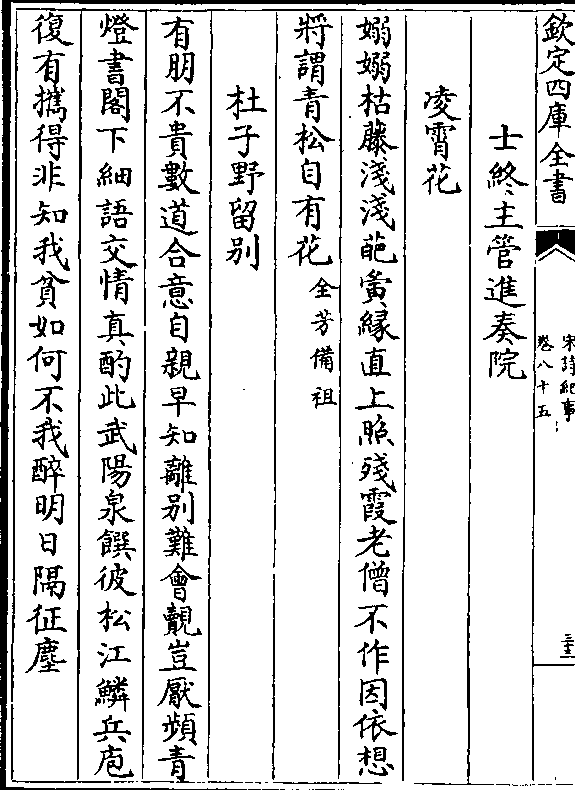 欽定四庫全書
宋詩紀事
卷八十五
三十三
士終主管進奏院
凌霄花
嫋嫋枯藤淺淺葩夤縁直上照殘霞老僧不作因依想
將謂青松自有花全芳備祖
杜子野留别
有朋不貴數道合意自親早知離别難會覿豈厭頻青
燈書閣下細語交情真酌此武陽泉饌彼松江鱗兵庖
復有攜得非知我貧如何不我醉明日隔征塵